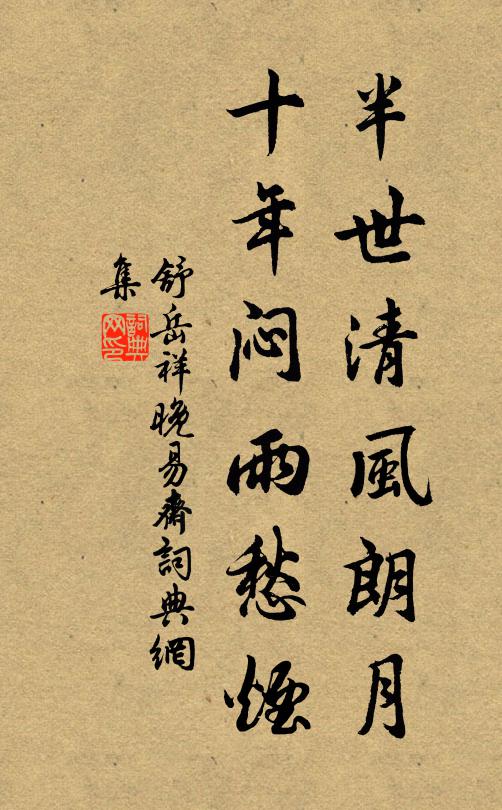 半世清風朗月
十年闷雨愁煙
舒岳祥晚易齋詞典網
集
詞典
网印